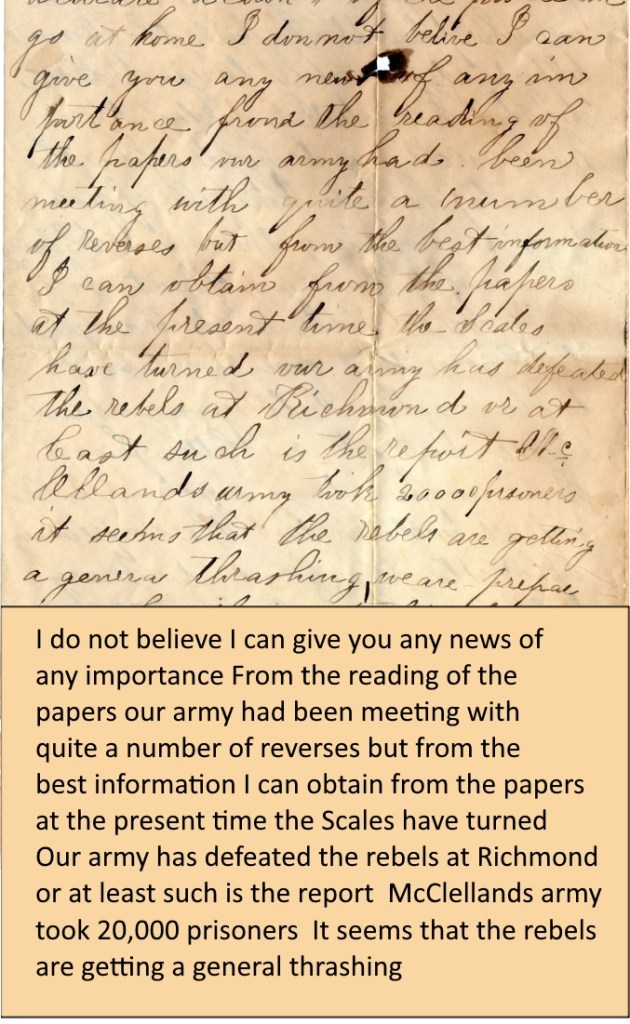 go at home I donnot belive I can
give you any news of any im
portance from the reading of
the papers our army had been
meeting with quite a number
of reverses but from the best information
I can obtain from the papers
at the present time the Scales
have turned our army has defeated
the rebels at Richmond or at
least such is the report Mc
lellands army took 20000 prisoners
it seems that the rebels are getting
a genera thrashing we are prepae
I do not believe I can give you any news of
any importance From the reading of the
papers our army had been meeting with
quite a number of reverses but from the
best information I can obtain from the papers
at the present time the Scales have turned
Our army has defeated the rebels at Richmond
or at least such is the report McClellands army
took 20,000 prisoners It seems that the rebels
are getting a general thrashing